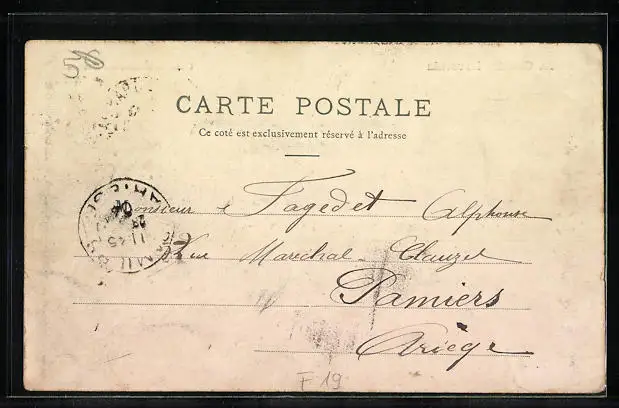 CARTE POSTALE
Ce coté est exclusivement réservé à l'adresse
Monsieur Fagedet Alphonse
Rue Maréchal Clauzel
Pamiers
Ariège
F 19